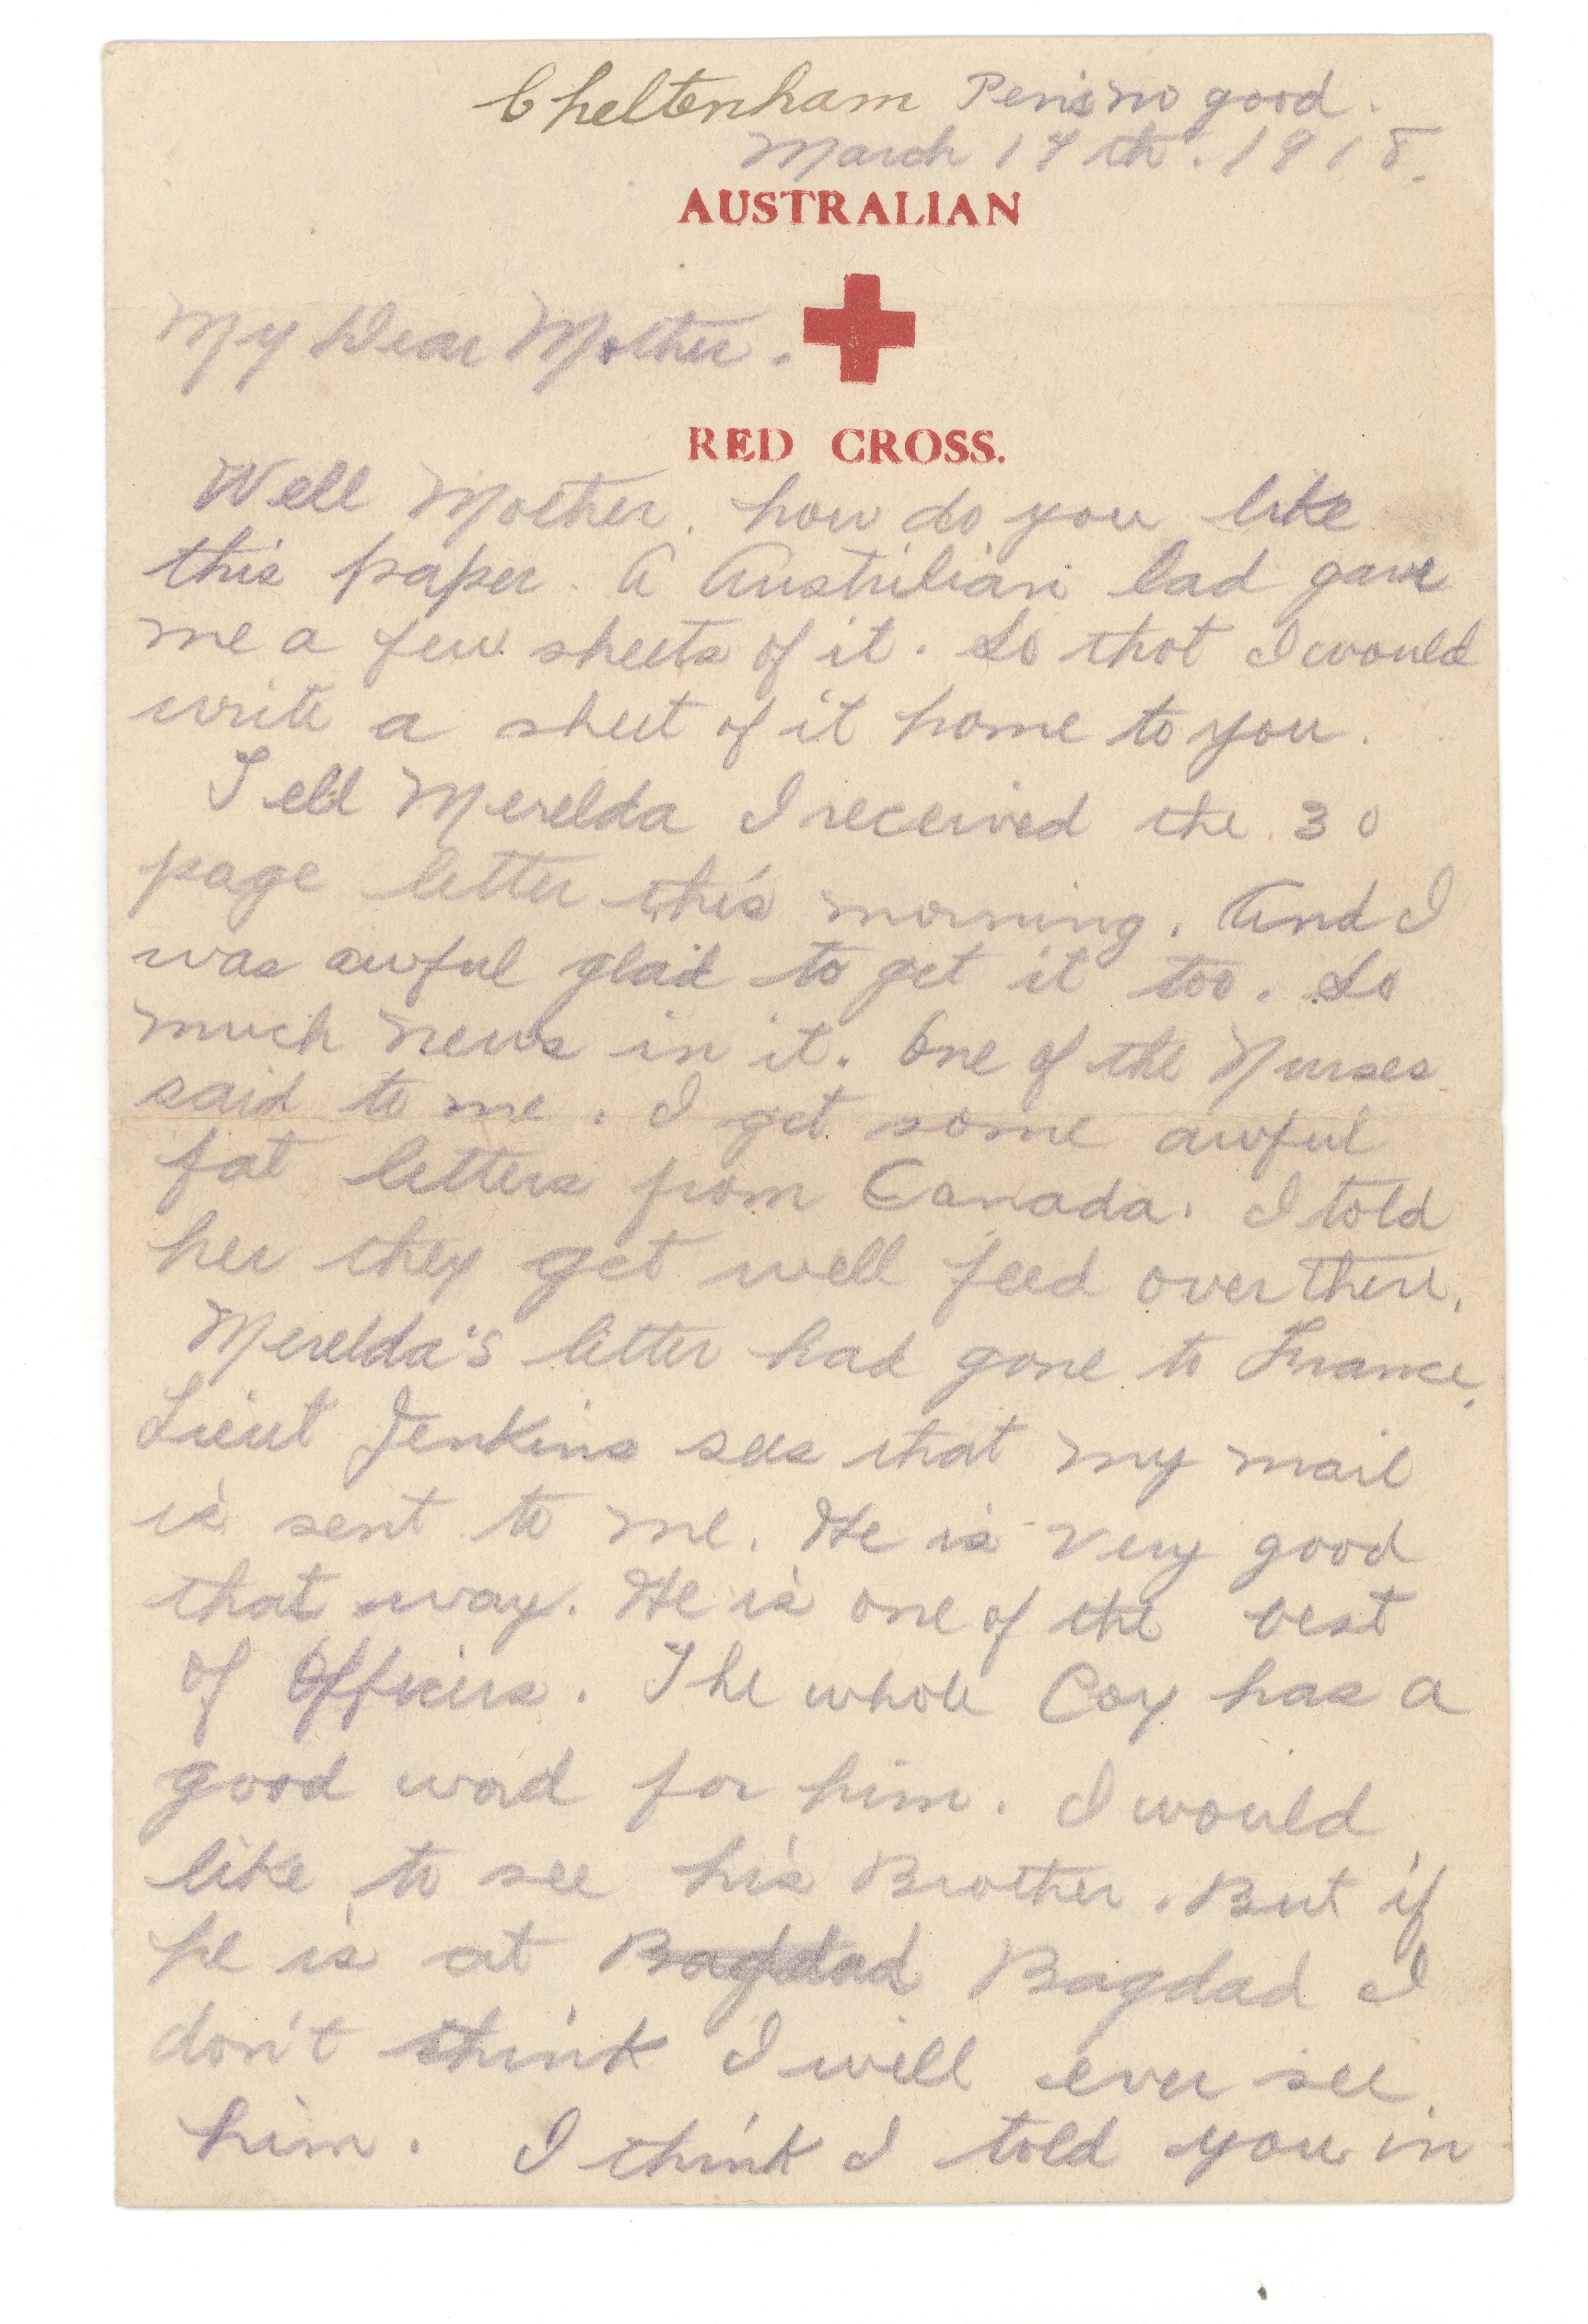 Cheltenham Pen is no good.
March 17th. 1918.
AUSTRALIAN
My Dear Mother.
RED CROSS.
Well Mother. how do you like
this paper. A Austrilian lad gave
me a few sheets of it. So that I would
write a sheet of it home to you.
Tell Merelda I received the 30
page letter this morning. And I
was awful glad to get it too. So
much news in it. One of the Nurses
said to me. I get some awful
fat letters from Canada. I told
her they get well feed over there.
Merelda's letter had gone to France.
Lieut Jenkins sees that my mail
is sent to me. He is very good
that way. He is one of the best
of Officers. The whole Coy has a
good word for him. I would
like to see his Brother. But if
he is at Bagdad Bagdad I
don't think I will ever see
him. I think I told you in